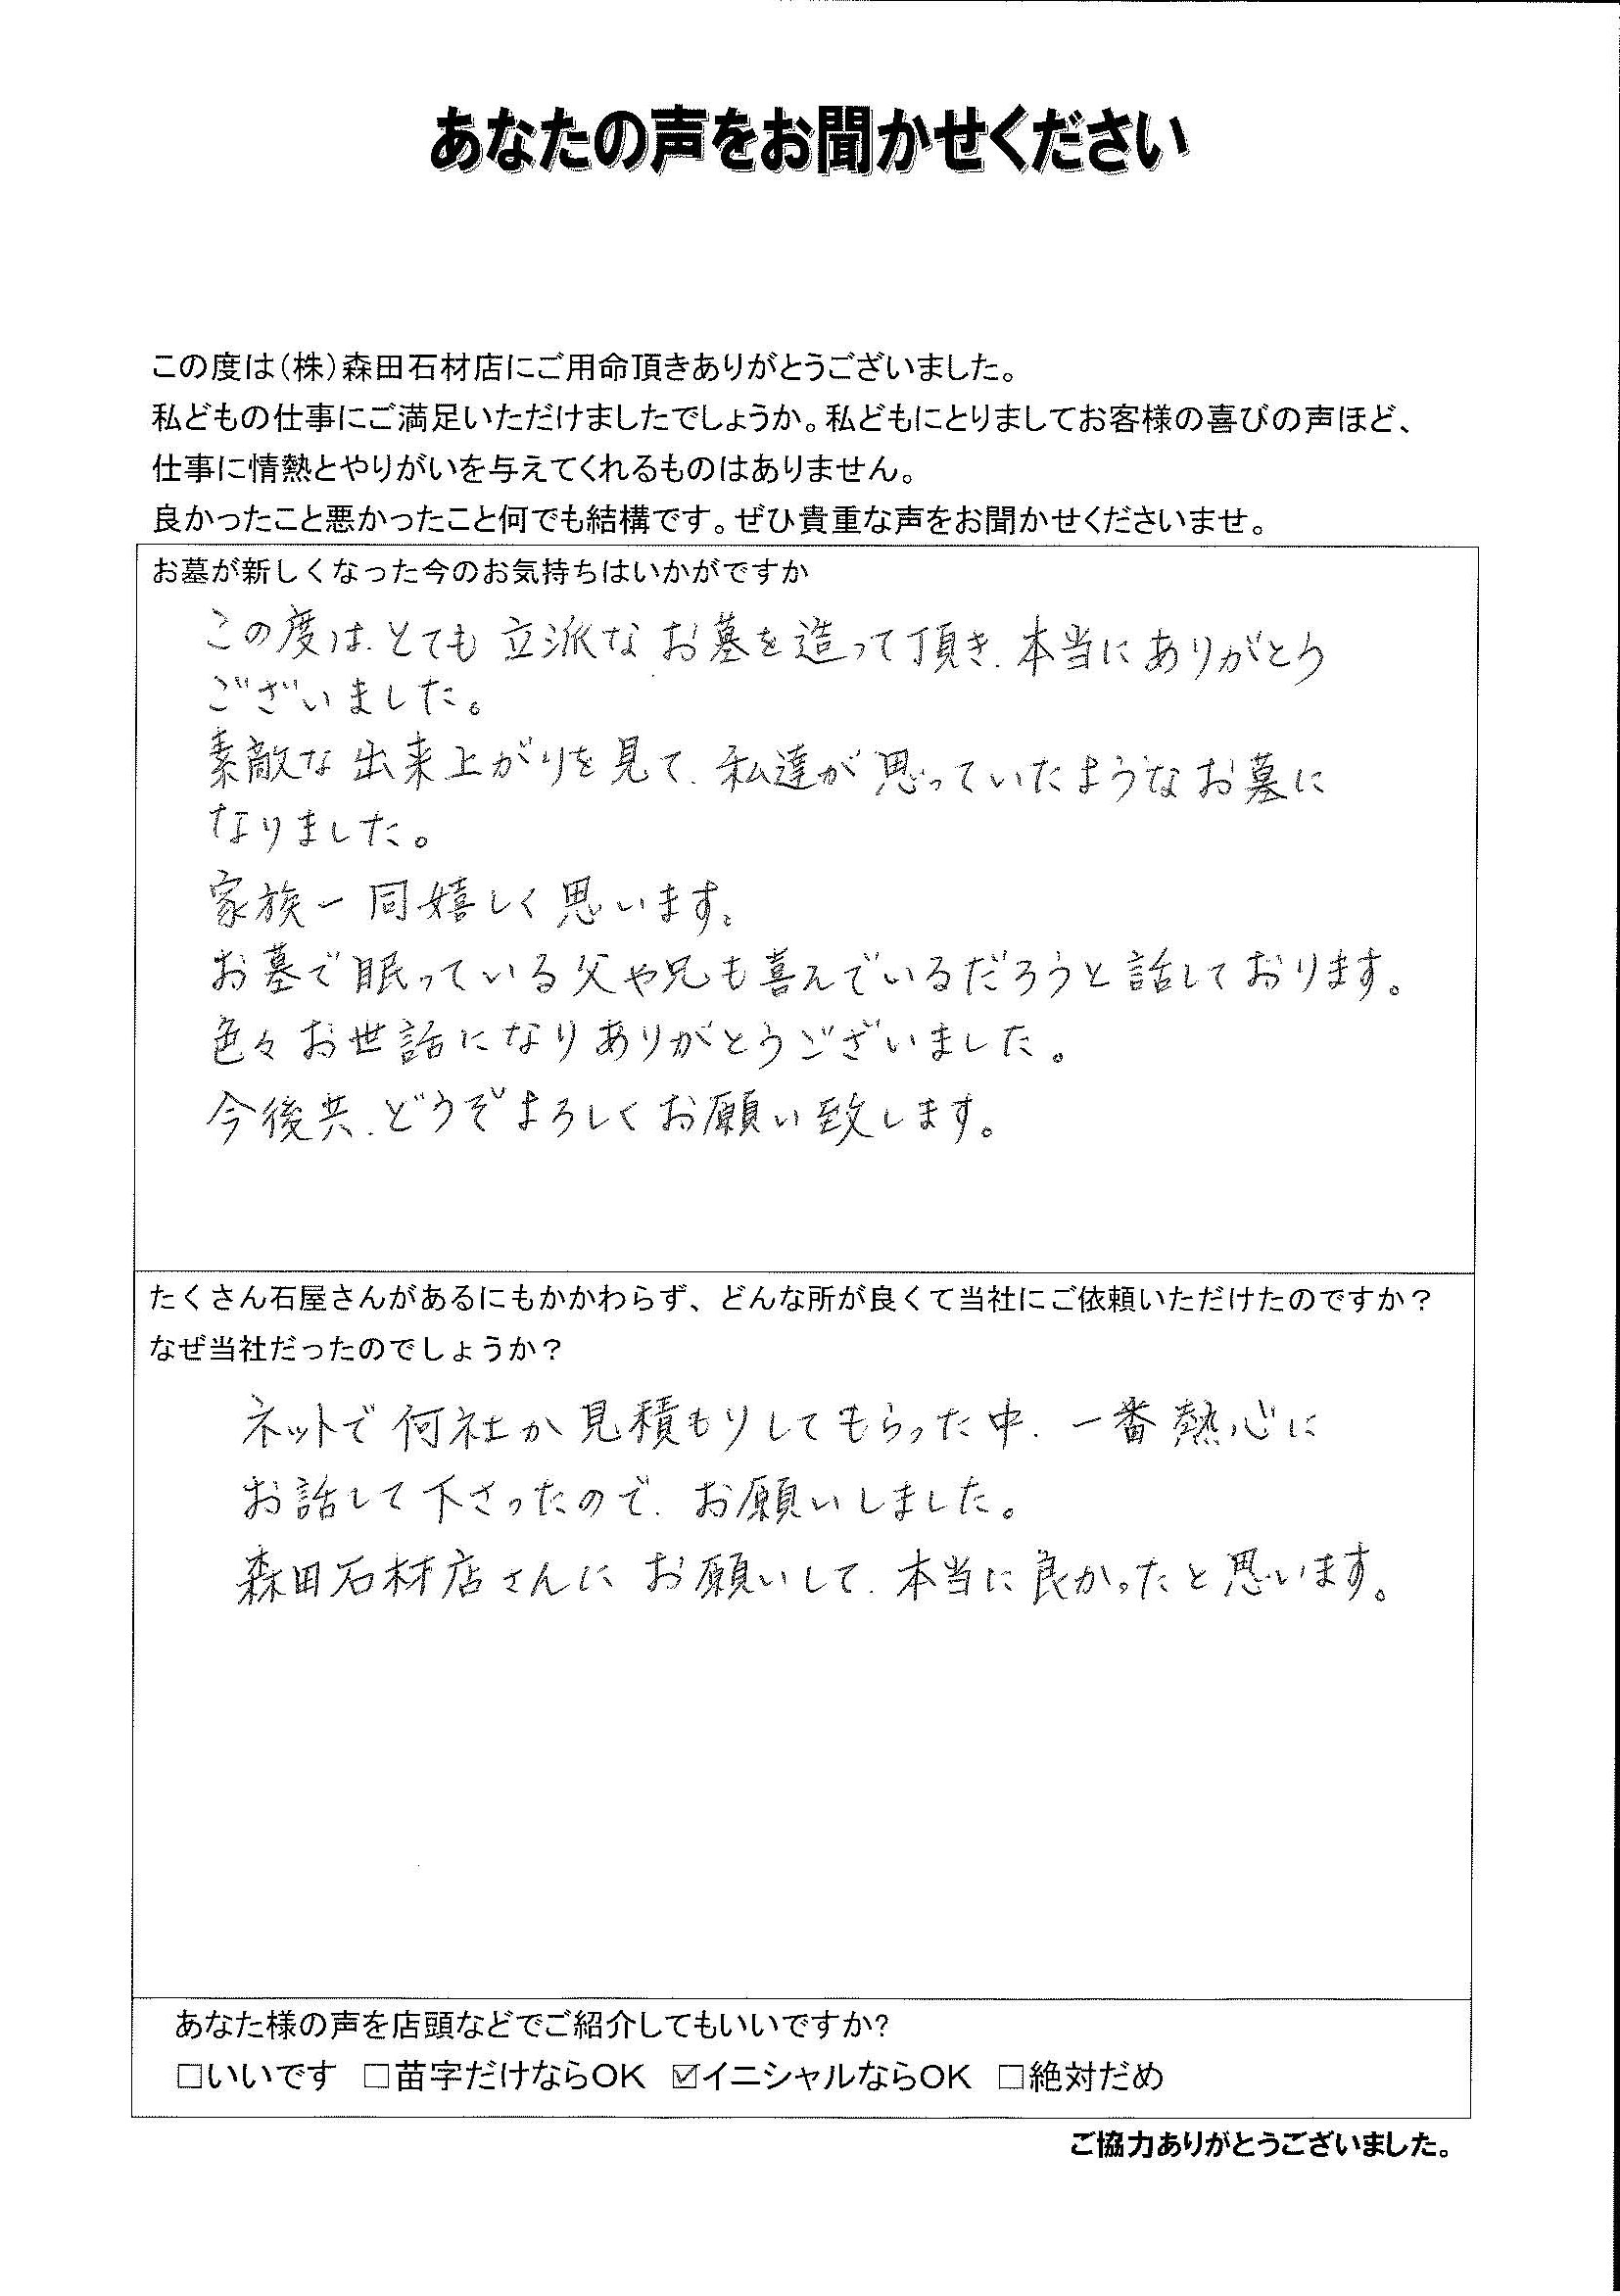 あなたの声をお聞かせください
この度は（株）森田石材店にご用命頂きありがとうございました。
私どもの仕事にご満足いただけましたでしょうか。私どもにとりましてお客様の喜びの声ほど、
仕事に情熱とやりがいを与えてくれるものはありません。
良かったこと悪かったこと何でも結構です。ぜひ貴重な声をお聞かせくださいませ。
お墓が新しくなった今のお気持ちはいかがですか
この度は、とても立派なお墓を造って頂き、本当にありがとう
ございました。
素敵な出来上がりを見て、私達が思っていたようなお墓に
なりました。
家族一同嬉しく思います。
お墓で眠っている父や兄も喜んでいるだろうと話しております。
色々お世話になりありがとうございました。
今後共、どうぞよろしくお願い致します。
たくさん石屋さんがあるにもかかわらず、どんな所が良くて当社にご依頼いただけたのですか？
なぜ当社だったのでしょうか？
ネットで何社か見積もりしてもらった中、一番熱心に
お話して下さったので、お願いしました。
森田石材店さんにお願いして、本当に良かったと思います。
あなた様の声を店頭などでご紹介してもいいですか?
□いいです □苗字だけならOK ☑イニシャルならOK □絶対だめ
ご協力ありがとうございました。